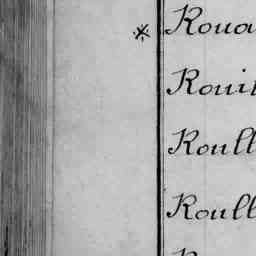 * Roua
Rouil
Roull
Roull